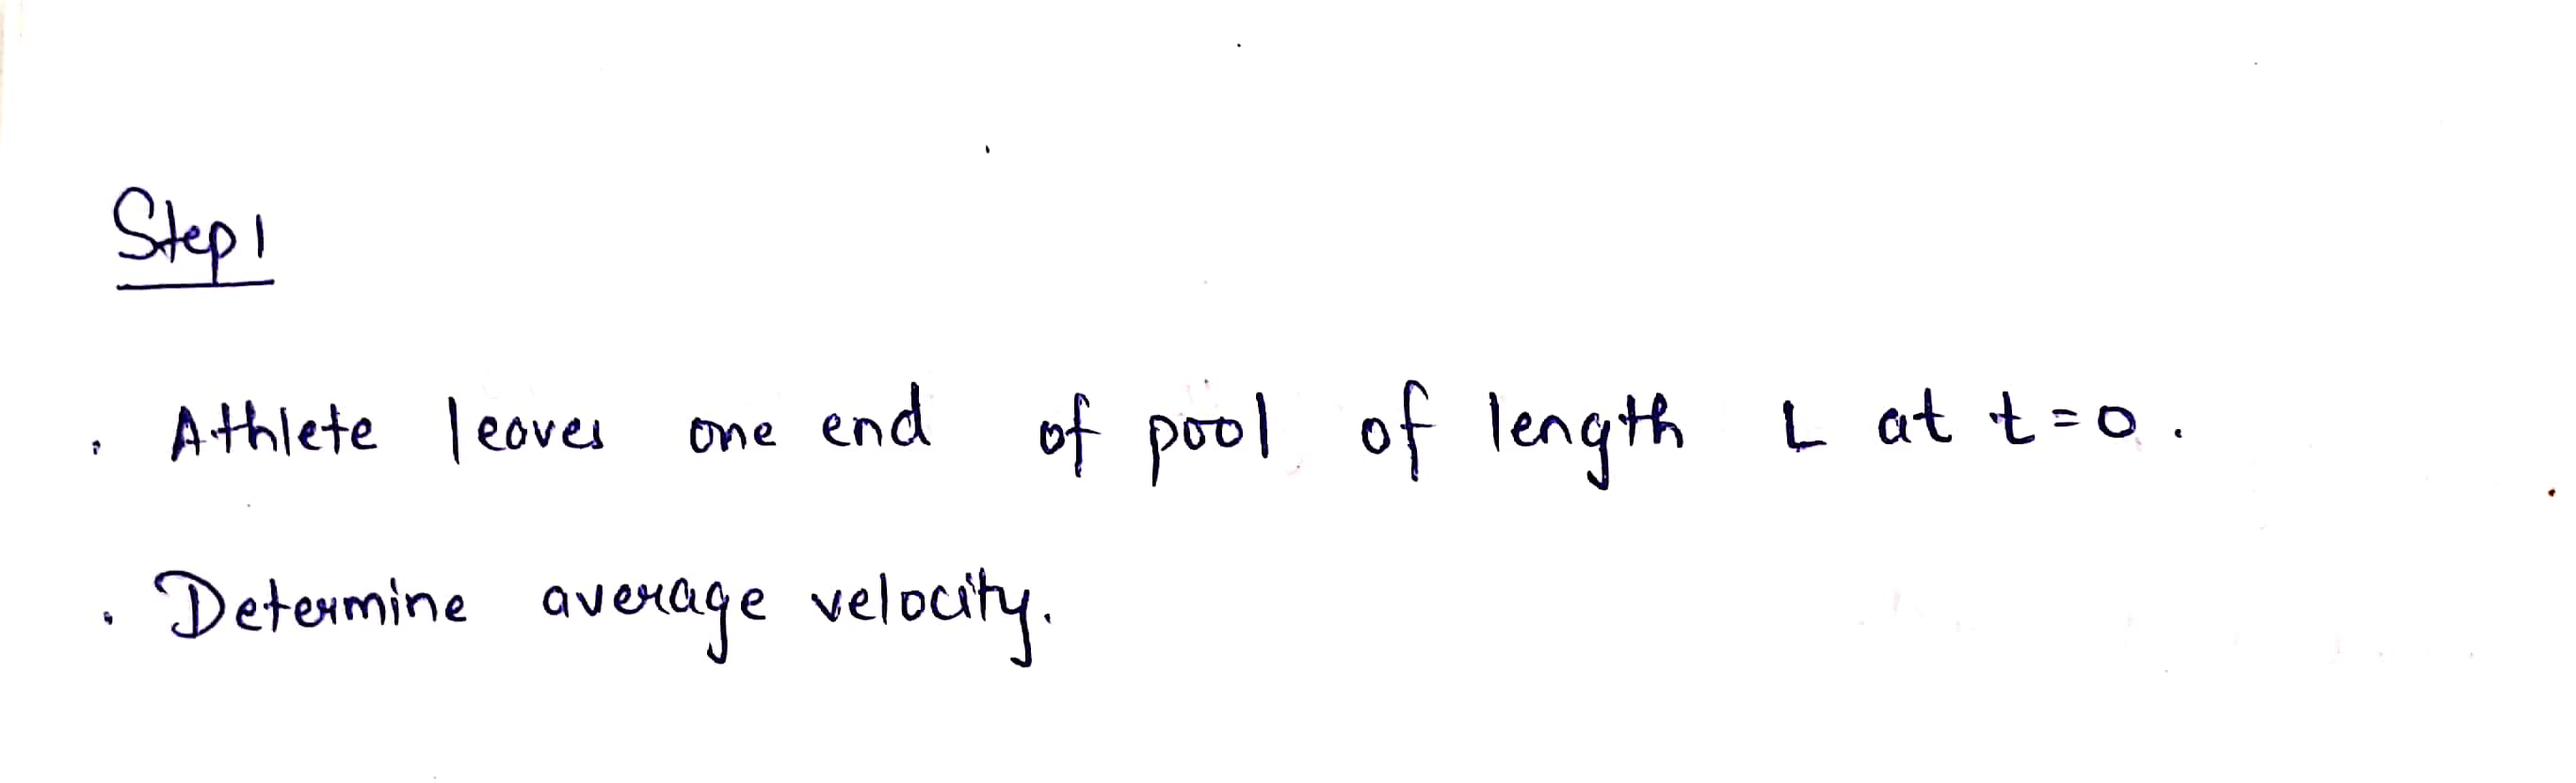 Step 1
. Athlete leaves one end of pool of length L at t=0.
. Determine average velocity.